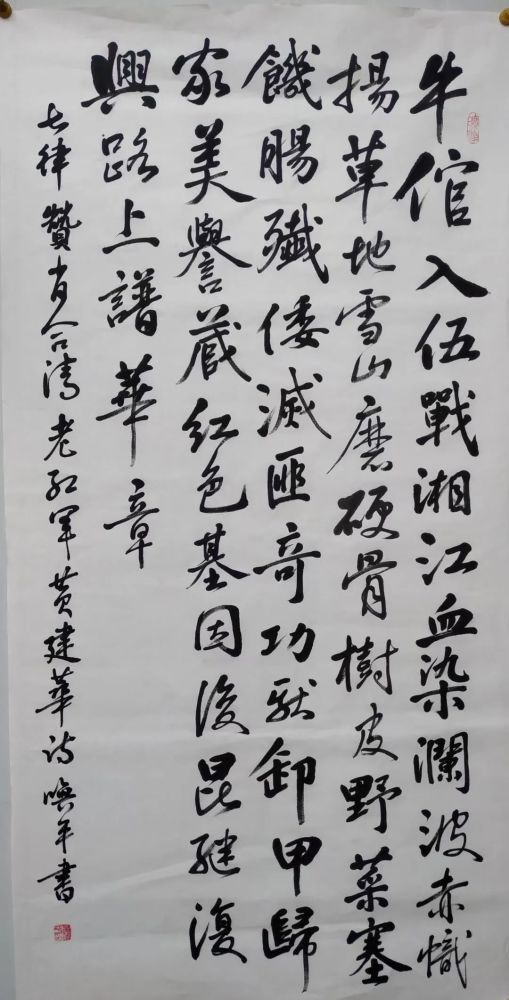 牛倌入伍戰湘江血染瀾波赤幟
揚草地雪山磨硬骨樹皮野菜塞
饑腸殲倭滅匪奇功獻卸甲歸
家美譽蔵红色基因後昆継復
興路上譜華章
七律贊肖合清老红军黄建華诗唤平書